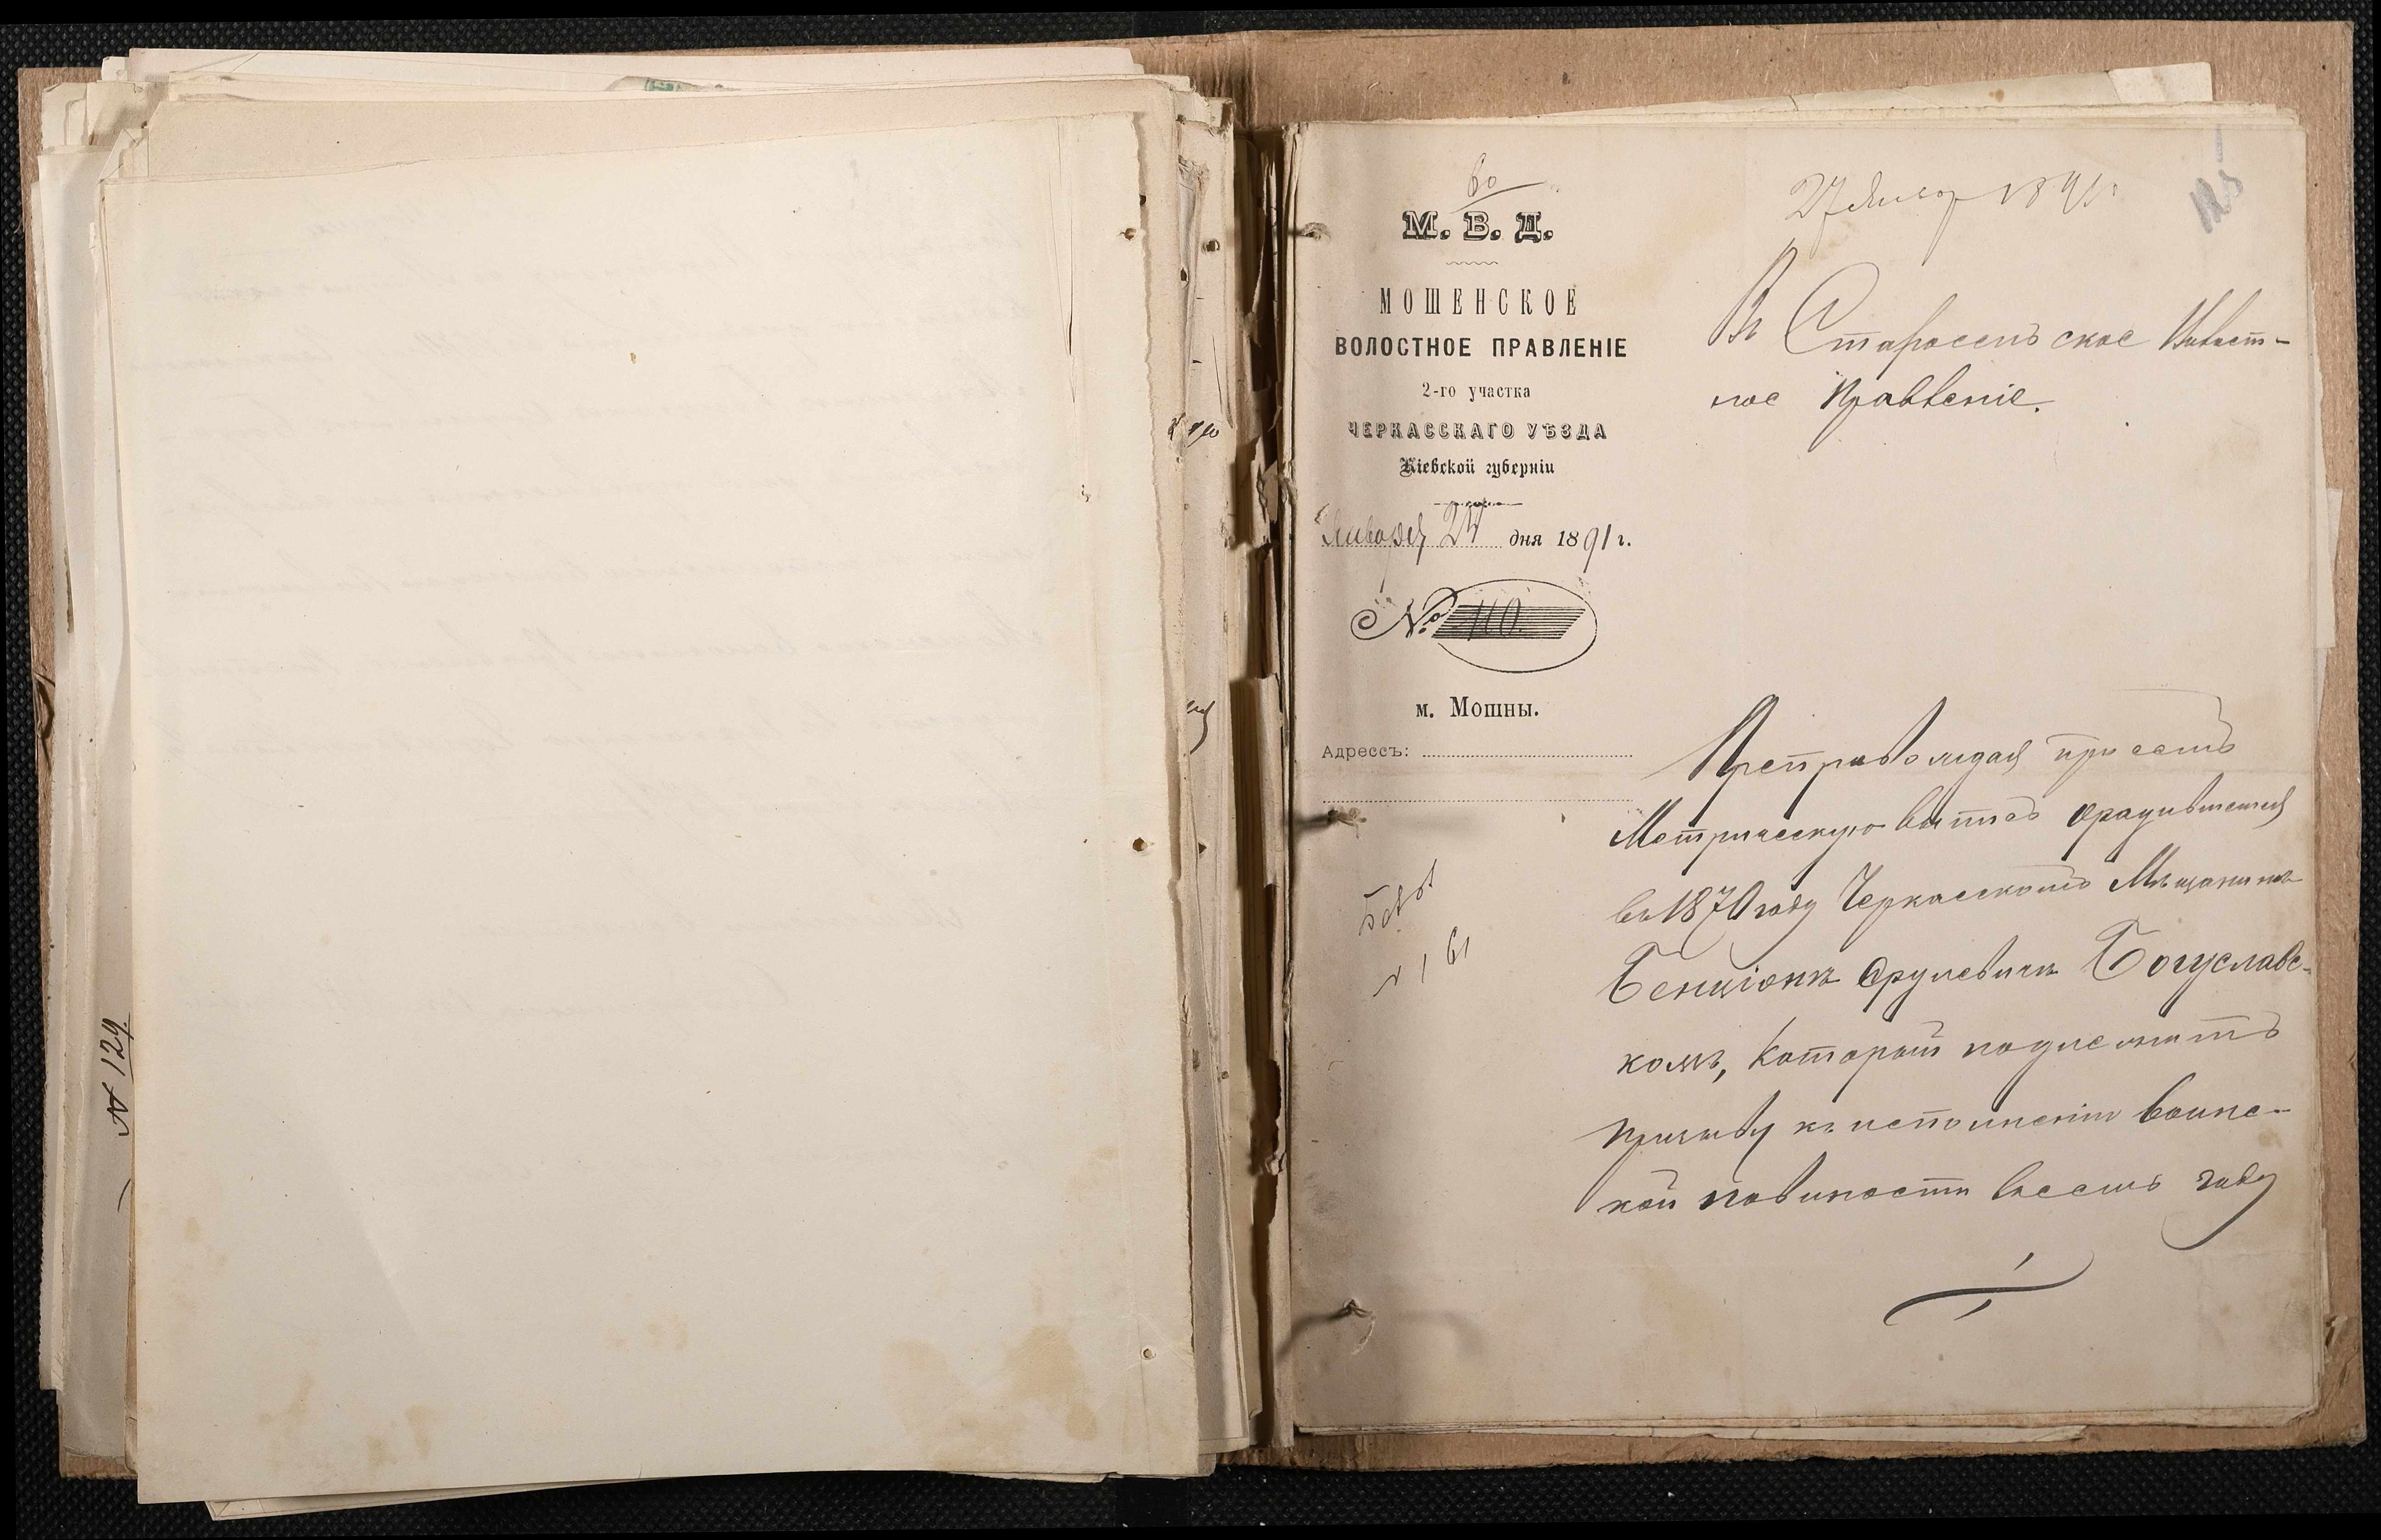 60
М. В. Д.
МОШЕНСКОЕ
ВОЛОСТНОЕ ПРАВЛЕНІЕ
2-го участка
ЧЕРКАССКАГО УѢЗДА
Кіевской губерніи
Января 24 дня 1891 г.
№ 110
м. Мошны.
Адрессъ:
27 Января 1891 г.
125
В Старосельское Волост-
ное Правленіе.
Препровождая при семъ
Метрическую выпись о родившемся
въ 1870 году Черкасскомъ Мѣщанинѣ
Бенціонѣ Срулевичѣ Богуславс-
комъ, который подлежитъ
призыву къ исполненію воинс-
кой повиности въ семъ году
№ 129